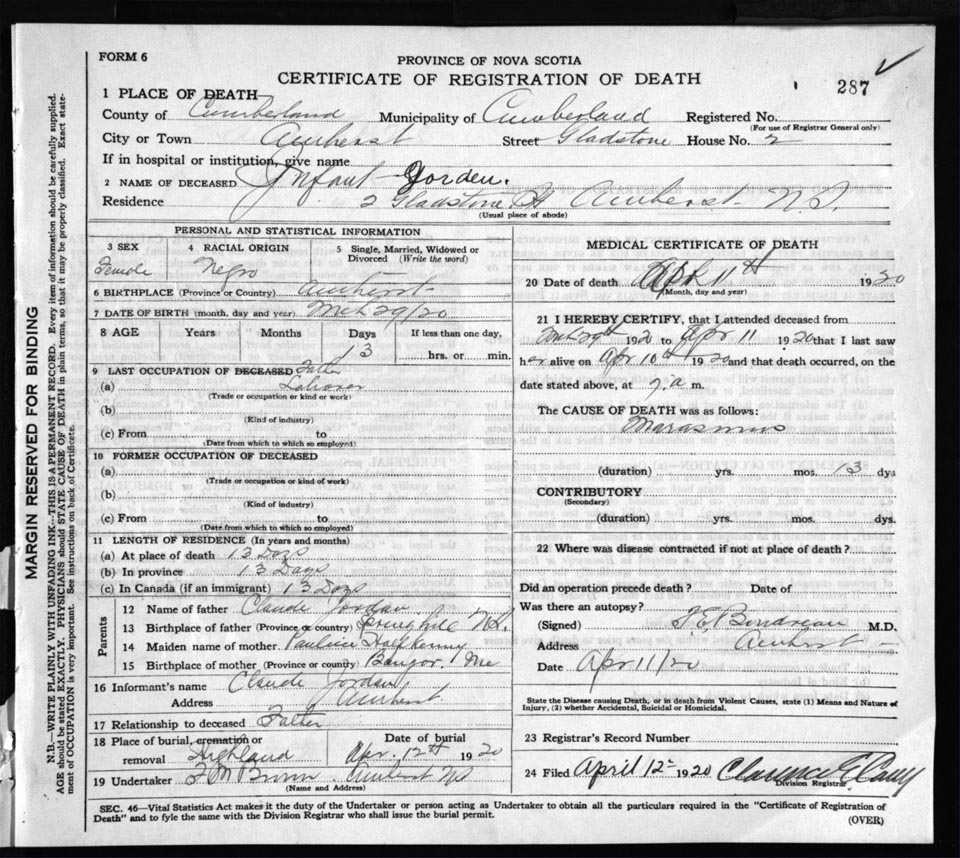 FORM 6
PROVINCE OF NOVA SCOTIA
CERTIFICATE OF REGISTRATION OF DEATH
287
1 PLACE OF DEATH
County of Cumberland Municipality of Cumberland Registered No.
(For use of Registrar General only)
City or Town Amherst Street Gladstone House No. 2
If in hospital or institution, give name
2 NAME OF DECEASED Infant Jorden.
Residence 2 Gladstone St Amherst N.S.
(Usual place of abode)
PERSONAL AND STATISTICAL INFORMATION
3 SEX 4 RACIAL ORIGIN 5 Single, Married, Widowed or Divorced (Write the word)
Female Negro
6 BIRTHPLACE (Province or Country) Amherst
7 DATE OF BIRTH (month, day and year) Mch 29/20
8 AGE Years Months Days If less than one day,
13 hrs. or min.
9 LAST OCCUPATION OF DECEASED Father
(a) Laborer
(Trade or occupation or kind or work)
(b)
(Kind of industry)
(c) From to
(Date from which to which so employed)
10 FORMER OCCUPATION OF DECEASED
(a)
(Trade or occupation or kind of work)
(b)
(Kind of industry)
(c) From to
(Date from which to which so employed)
11 LENGTH OF RESIDENCE (In years and months)
(a) At place of death 12 Days
(b) In province 13 Days
(c) In Canada (if an immigrant) 13 Days
Parents
12 Name of father Claude Jordan
13 Birthplace of father (Province or country) Springhill N.S.
14 Maiden name of mother. Pauline
15 Birthplace of mother (Province or country) Bangor, Me
16 Informant's name Claude Jordan
Address Amherst
17 Relationship to deceased Father
18 Place of burial, cremation or removal Date of burial
Highland Apr. 12th 1920
19 Undertaker Amherst NS
(Name and Address)
MEDICAL CERTIFICATE OF DEATH
20 Date of death Apl 11th 1920
(Month, day and year)
21 I HEREBY CERTIFY, that I attended deceased from
Mch 29th 1920 to Apr 11 1920 that I last saw
her alive on Apr 10th 1920 and that death occurred, on
date stated above, at 7. a m.
The CAUSE OF DEATH was as follows:
Marasmus
(duration) yrs. mos. 13 dys
CONTRIBUTORY
(Secondary)
(duration) yrs. mos. dys.
22 Where was disease contracted if not at place of death?
Did an operation precede death? Date of
Was there an autopsy?
(Signed) M.D.
Address Amherst
Date Apr 11/20
State the Disease causing Death, or in death from Violent Causes, state (1) Means and Nature of
Injury, (2) whether Accidental, Suicidal or Homicidal.
23 Registrar's Record Number
24 Filed April 12 1920 Clarence
Division Registrar
SEC. 46—Vital Statistics Act makes it the duty of the Undertaker or person acting as Undertaker to obtain all the particulars required in the "Certificate of Registration of
Death" and to fyle the same with the Division Registrar who shall issue the burial permit.
(OVER)
MARGIN RESERVED FOR BINDING
N.B.—WRITE PLAINLY WITH UNFADING INK—THIS IS A PERMANENT RECORD. Every item of information should be carefully supplied.
AGE should be stated EXACTLY. PHYSICIANS should STATE CAUSE OF DEATH in plain terms, so that it may be properly classified. Exact state-
ment of OCCUPATION is very important. See instructions on back of Certificate.